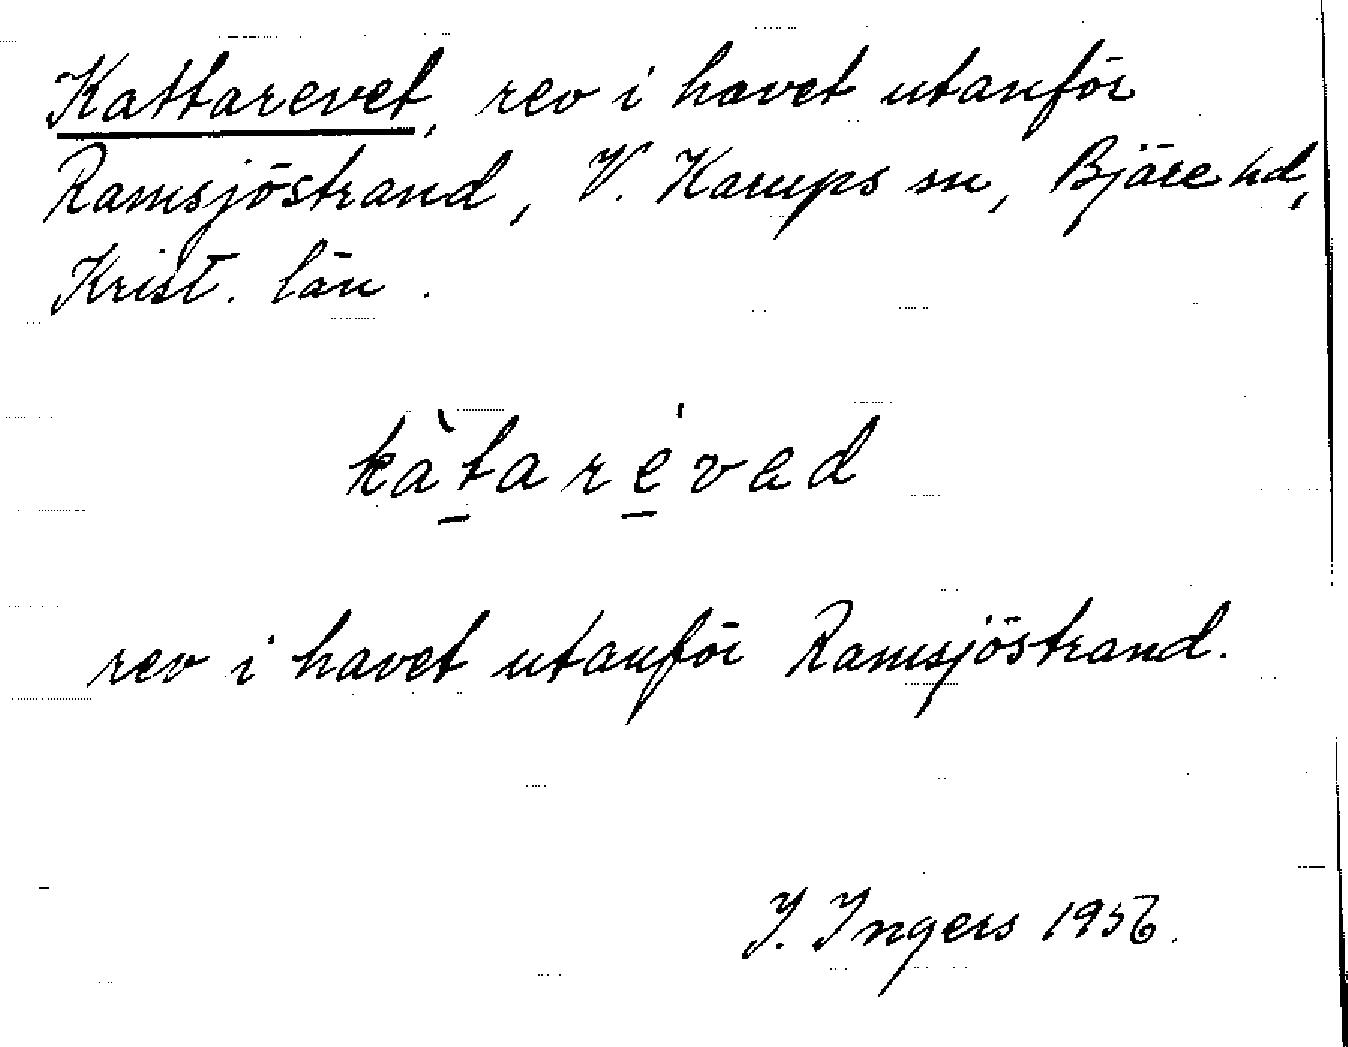 Kattarevet, rev i havet utanför
Ramsjöstrand, V. Karups sn, Bjäre hd,
Krist. län.
kàtarévad
rev i havet utanför Ramsjöstrand.
I. Ingers 1956.